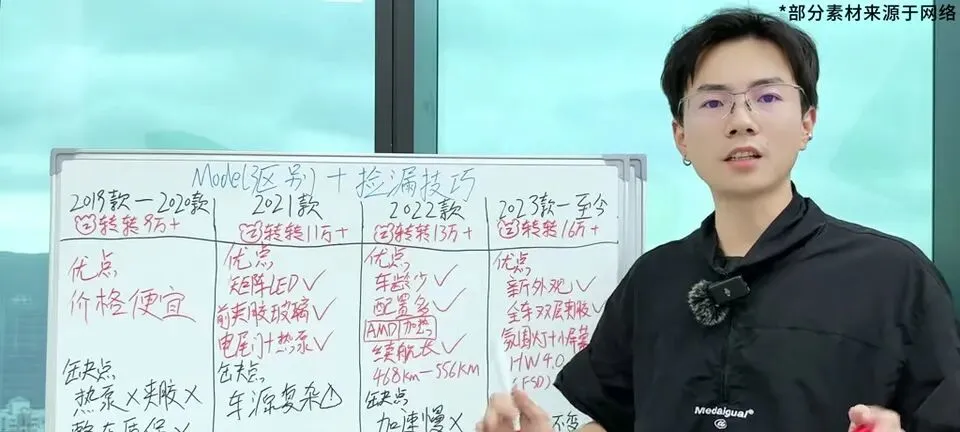 *部分素材来源于网络
Model3区别+捡漏技巧
2019款-2020款
转转9万+
优点
价格便宜
缺点
热泵×夹胶×
2021款
转转11万+
优点
矩阵LED✓
前夹胶玻璃✓
电尾门+热泵✓
缺点
车源复杂
2022款
转转13万+
优点
车龄少✓
配置多✓
AMD 加热
续航长✓
468km-556KM
缺点
加速慢×
2023款-至今
转转16万+
优点
新外观✓
全车双层夹胶✓
氛围灯+小屏幕
HW4.0
(FSD)
Medalgual®